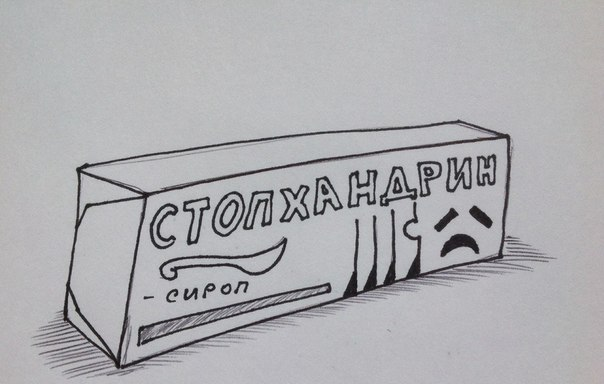 СТОПХАНДРИН
- СИРОП